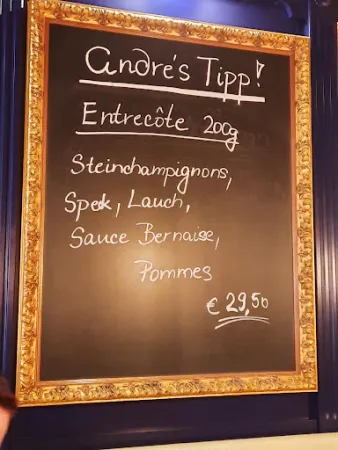 André's Tipp!
Entrecôte 200g
Steinchampignons,
Spek, Lauch,
Sauce Bernaise,
Pommes
€ 29,50